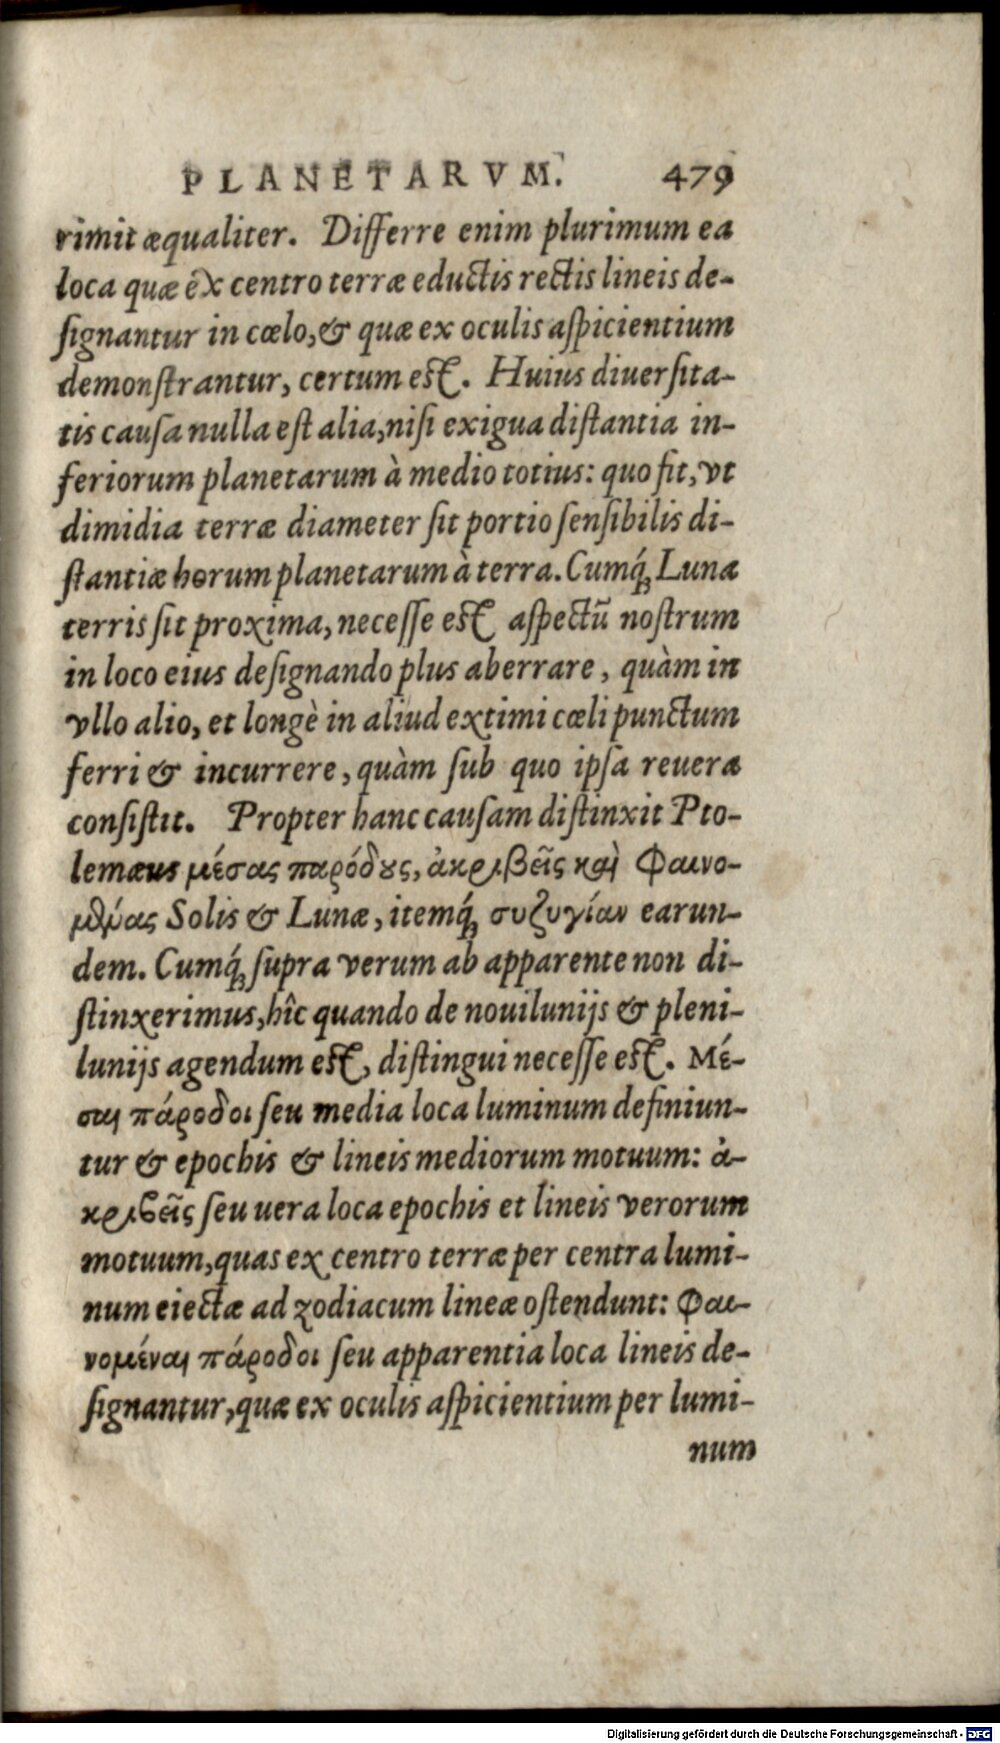 PLANETARVM. 479
rimit æqualiter. Differre enim plurimum ea
loca quæ ex centro terræ eductis rectis lineis de-
ſignantur in cœlo,& quæ ex oculis aſpicientium
demonſtrantur, certum eſt. Huius diuerſita-
tis cauſa nulla eſt alia,niſi exigua diſtantia in-
feriorum planetarum à medio totius: quo fit,vt
dimidia terræ diameter ſit portio ſenſibilis di-
ſtantiæ horum planetarum à terra. Cumq́; Luna
terris ſit proxima, neceſſe eſt aſpectũ noſtrum
in loco eius deſignando plus aberrare, quàm in
vllo alio, et longè in aliud extimi cœli punctum
ferri & incurrere, quàm ſub quo ipſa reuera
conſiſtit. Propter hanc cauſam diſtinxit Pto-
lemæus μέσας παρόδȣς, ἀκριβεῖς καὶ Φαινο-
μθμύας Solis & Lunæ, itemq́; συζυγίαν earun-
dem. Cumq́; ſupra verum ab apparente non di-
ſtinxerimus,hîc quando de nouilunijs & pleni-
lunijs agendum eſt, diſtingui neceſſe eſt. Μέ-
σαι πάροδοι ſeu media loca luminum definiun-
tur & epochis & lineis mediorum motuum: ἀ-
κριβεῖς ſeu uera loca epochis et lineis verorum
motuum,quas ex centro terræ per centra lumi-
num eiectæ ad zodiacum lineæ oſtendunt: Φαι-
νομέναι πάροδοι ſeu apparentia loca lineis de-
ſignantur,quæ ex oculis aſpicientium per lumi-
num
Digitalisierung gefördert durch die Deutsche Forschungsgemeinschaft - DFG